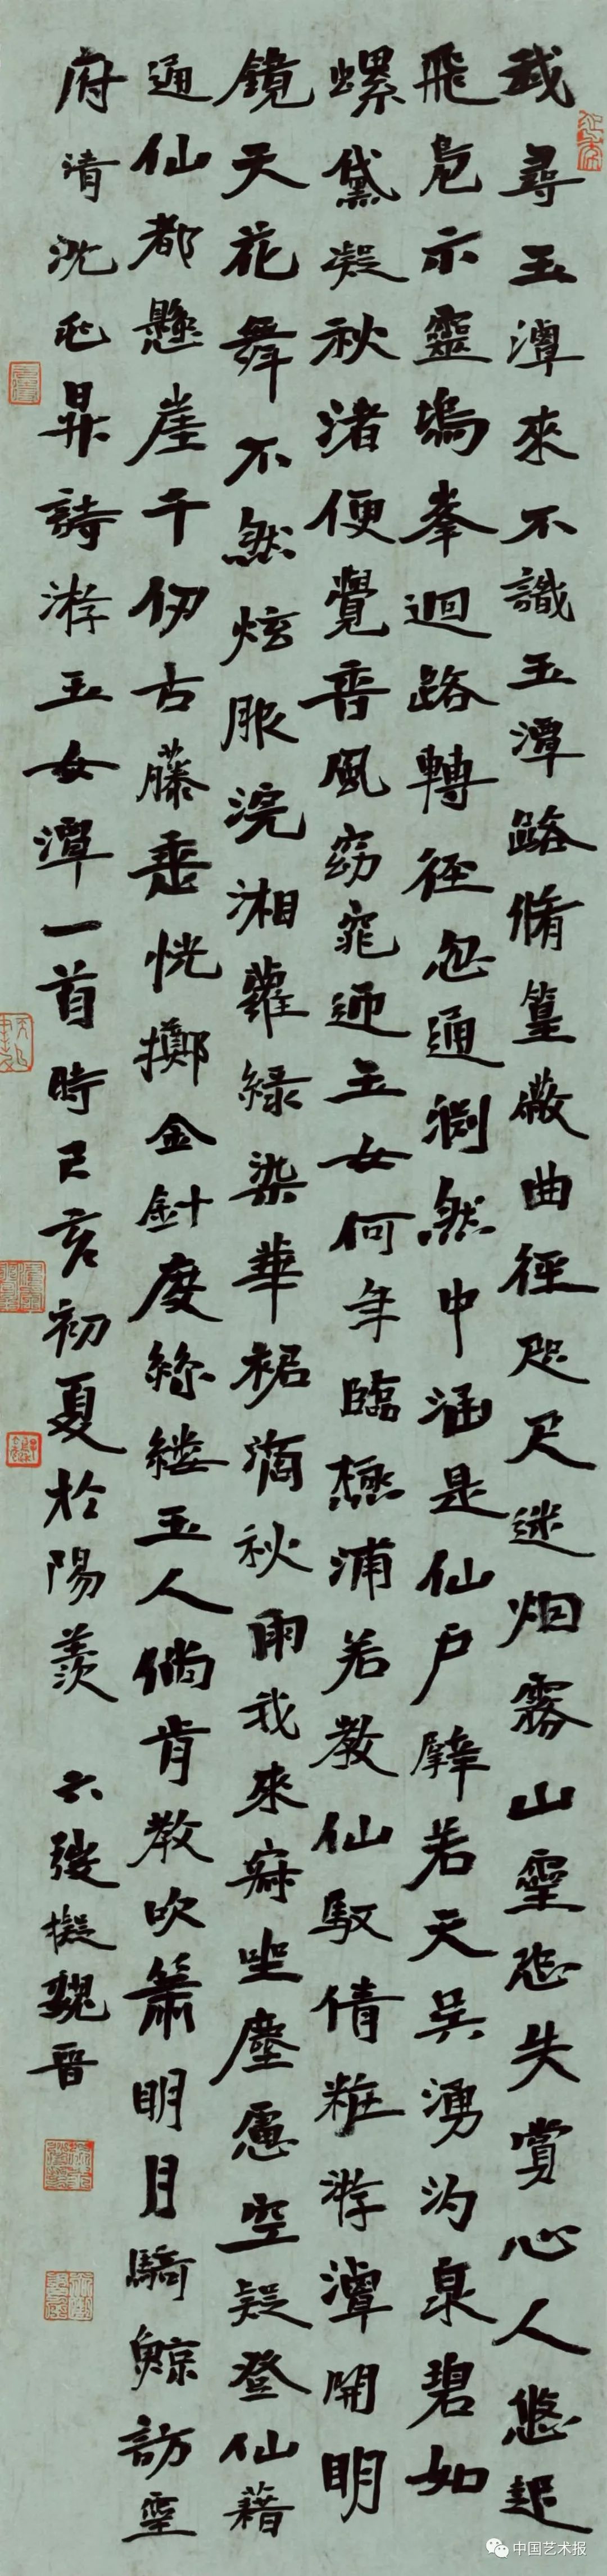 我尋玉潭來不識玉潭路脩篁蔽曲徑咫尺迷烟霧山靈恐失賞心人悠起
飛凫示靈塢峯迴路轉徑忽通涧然中涵是仙户擘若天吴湧沟泉碧如
螺黛凝秋渚便覺香風窈窕迎玉女何年臨極浦若教仙馭倩粧游潭開明
鏡天花舞不然炫服浣湘蘿緑染華裙滴秋雨我來寂坐塵慮空疑登仙藉
通仙都懸崖千仞古藤垂恍擲金針度綵縷玉人倘肯教吹簫明月騎鯨訪靈
府清沈丕昇詩游玉女潭一首時己亥初夏於陽羨 云發擬魏晉
中国艺术报